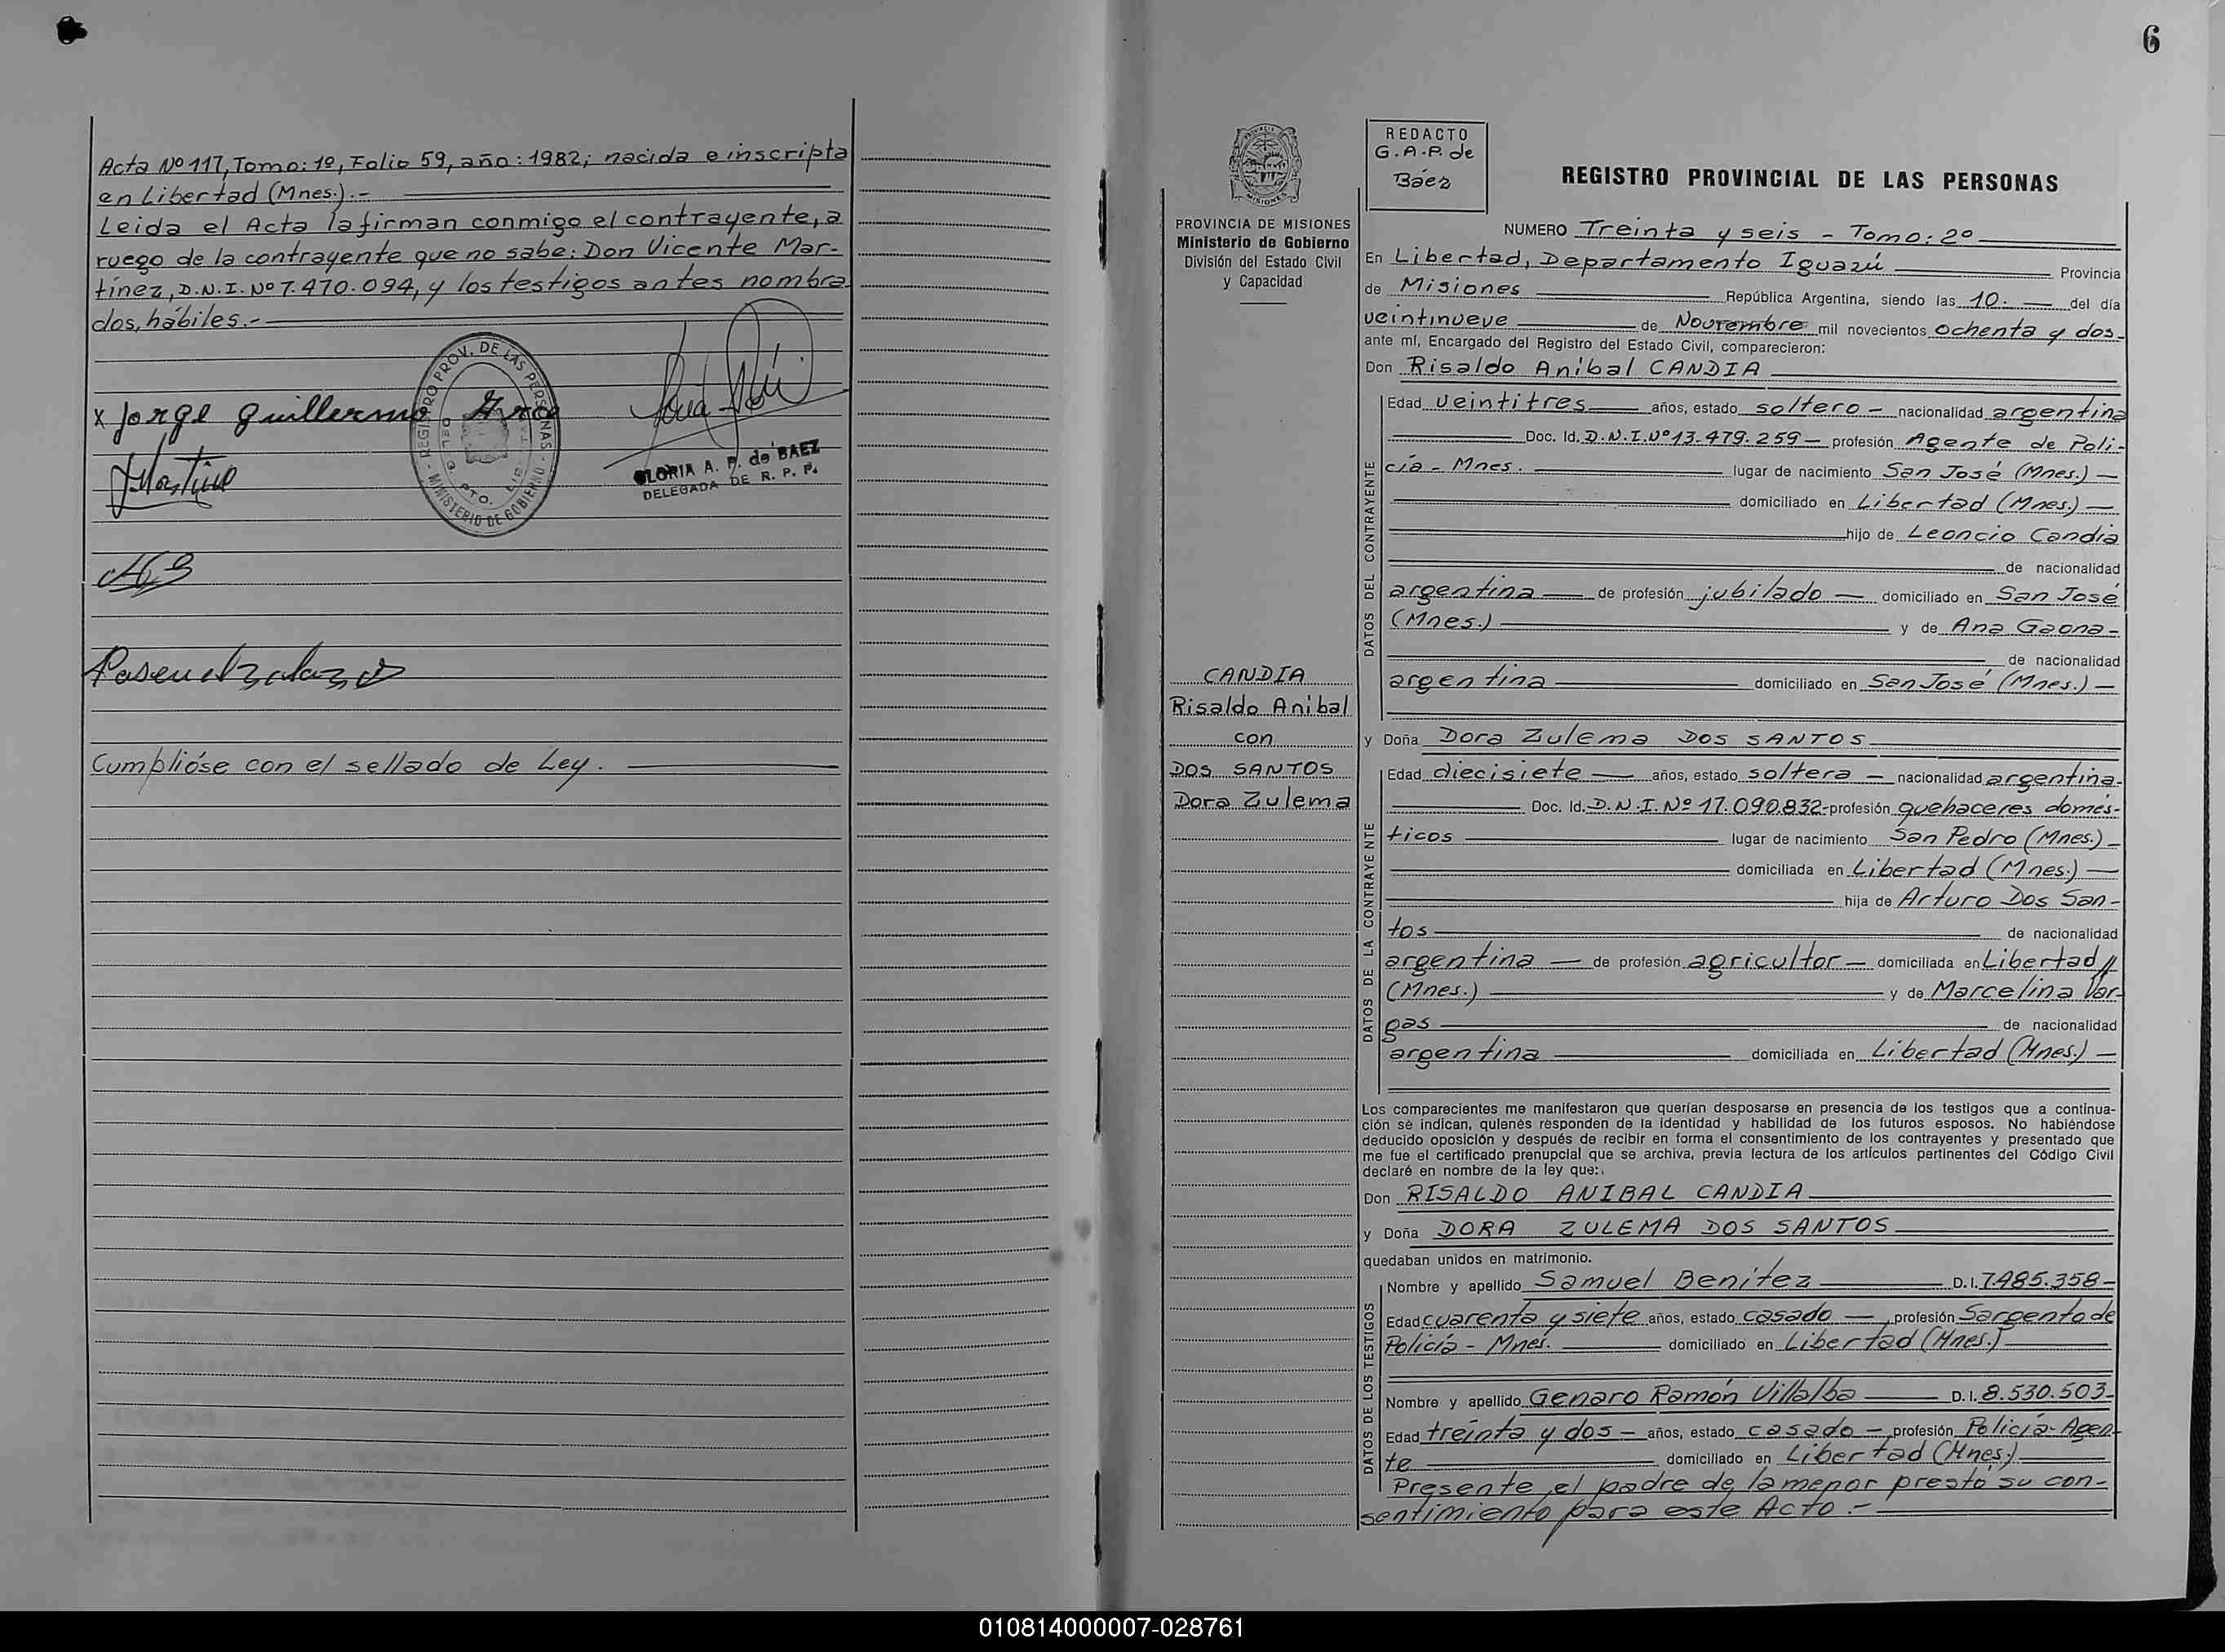 Acta Nº 117, Tomo: 1º, Folio 59, año: 1982; nacida e inscripta
en Libertad (Mnes.).-
Leida el Acta la firman conmigo el contrayente, a
ruego de la contrayente que no sabe: Don Vicente Mar-
tinez, D.N.I. Nº 7.470.094, y los testigos antes nombra
dos, hábiles.-
REGISTRO PROV. DE LAS PERSONAS - MINISTERIO DE GOBIERNO -
x Jorge Guillermo
GLORIA A. P. de BAEZ
DELEGADA DE R. P. P.
Martine
Cumplióse con el sellado de Ley.
6
PROVINCIA DE MISIONES
Ministerio de Gobierno
División del Estado Civil
y Capacidad
CANDIA
Risaldo Anibal
con
DOS SANTOS
Dora Zulema
REDACTO
G.A.P. de
Báez
REGISTRO PROVINCIAL DE LAS PERSONAS
NUMERO Treinta y seis - Tomo: 2º
En Libertad, Departamento Iguazú Provincia
de Misiones República Argentina, siendo las 10. del día
veintinueve de Noviembre mil novecientos ochenta y dos-
ante mí, Encargado del Registro del Estado Civil, comparecieron:
Don Risaldo Aníbal CANDIA
DATOS DEL CONTRAYENTE
Edad veintitres años, estado soltero - nacionalidad argentina
Doc. Id. D.N.I. Nº 13.479.259 - profesión Agente de Poli-
cía - Mnes. lugar de nacimiento San José (Mnes.) -
domiciliado en Libertad (Mnes.) -
hijo de Leoncio Candia
de nacionalidad
argentina de profesión jubilado - domiciliado en San José
(Mnes.) y de Ana Gaona -
de nacionalidad
argentina domiciliado en San José (Mnes.) -
y Doña Dora Zulema DOS SANTOS
DATOS DE LA CONTRAYENTE
Edad diecisiete años, estado soltera - nacionalidad argentina.
Doc. Id. D.N.I. Nº 17.090.832- profesión quehaceres domés-
ticos lugar de nacimiento San Pedro (Mnes.) -
domiciliada en Libertad (Mnes.) -
hija de Arturo Dos San-
tos de nacionalidad
argentina - de profesión agricultor - domiciliada en Libertad //
(Mnes.) y de Marcelina Var-
gas de nacionalidad
argentina domiciliada en Libertad (Mnes.) -
Los comparecientes me manifestaron que querían desposarse en presencia de los testigos que a continua-
ción se indican, quienes responden de la identidad y habilidad de los futuros esposos. No habiéndose
deducido oposición y después de recibir en forma el consentimiento de los contrayentes y presentado que
me fue el certificado prenupcial que se archiva, previa lectura de los artículos pertinentes del Código Civil
declaré en nombre de la ley que:
Don RISALDO ANIBAL CANDIA
y Doña DORA ZULEMA DOS SANTOS
quedaban unidos en matrimonio.
DATOS DE LOS TESTIGOS
Nombre y apellido Samuel Benítez D.I. 7.485.358-
Edad cuarenta y siete años, estado casado - profesión Sargento de
Policía - Mnes. domiciliado en Libertad (Mnes.)
Nombre y apellido Genaro Ramón Villalba D.I. 8.530.503-
Edad treinta y dos - años, estado casado - profesión Policía - Agen-
te domiciliado en Libertad (Mnes.)
Presente el padre de la menor prestó su con-
sentimiento para este Acto.-
010814000007-028761